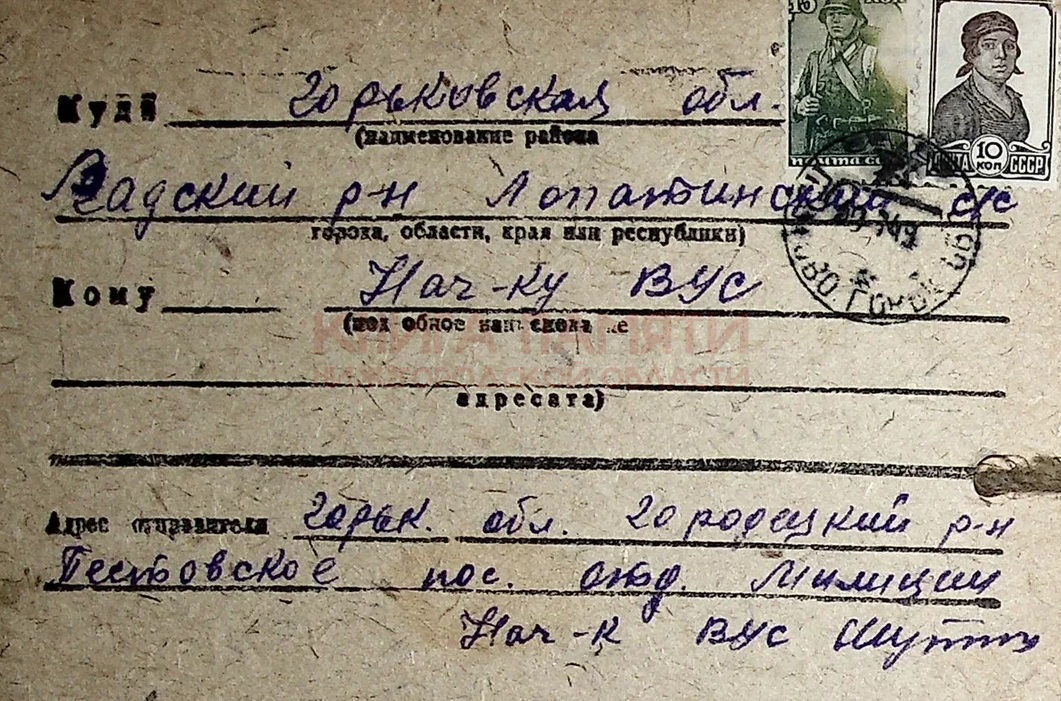 15 коп
почта сс
10 коп СССР
Куда Горьковская обл.
(наименование района
Вадский р-н Лопатинский с/с
города, области, края или республики)
Кому Нач-ку ВУС
КНИГА ПАМЯТИ
НИЖЕГОРОДСКОЙ ОБЛАСТИ
адресата)
Адрес отправителя Горьк. обл. Городецкий р-н
Пестовское пос. отд. Милиции
Нач-к ВУС